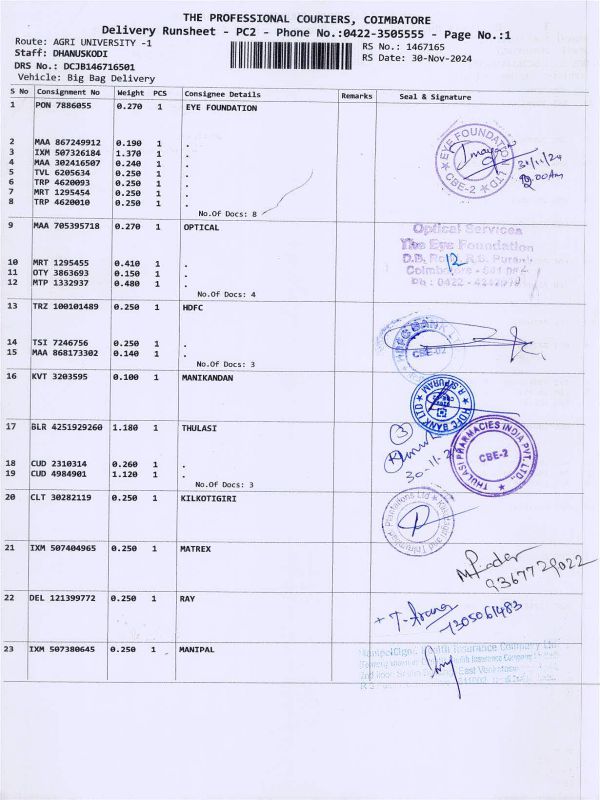 THE PROFESSIONAL COURIERS, COIMBATORE
Delivery Runsheet - PC2 - Phone No.:0422-3505555 - Page No.:1
Route: AGRI UNIVERSITY -1
RS No.: 1467165
Staff: DHANUSKODI
RS Date: 30-Nov-2024
DRS No.: DCJB146716501
Vehicle: Big Bag Delivery
S No Consignment No Weight PCS Consignee Details Remarks Seal & Signature
1 PON 7886055 0.270 1 EYE FOUNDATION
2 MAA 867249912 0.190 1 .
3 IXM 507326184 1.370 1 .
4 MAA 302416507 0.240 1 .
5 TVL 6205634 0.250 1 .
6 TRP 4620093 0.250 1 .
7 MRT 1295454 0.250 1 .
8 TRP 4620010 0.250 1 .
No.Of Docs: 8
EYE FOUNDATION
CBE-2
30/11/24
00Am
9 MAA 705395718 0.270 1 OPTICAL
10 MRT 1295455 0.410 1 .
11 OTY 3863693 0.150 1 .
12 MTP 1332937 0.480 1 .
No.Of Docs: 4
Optical Services
The Eye Foundation
D.B. R.S. Puram
Coimbatore
Ph : 0422
13 TRZ 100101489 0.250 1 HDFC
14 TSI 7246756 0.250 1 .
15 MAA 868173302 0.140 1 .
No.Of Docs: 3
HDFC BANK
CBE-02
16 KVT 3203595 0.100 1 MANIKANDAN
HDFC BANK LTD
R.S.PURAM
17 BLR 4251929260 1.180 1 THULASI
18 CUD 2310314 0.260 1 .
19 CUD 4984901 1.120 1 .
No.Of Docs: 3
3
30-11-2
THULASI PHARMACIES INDIA PVT. LTD.,
CBE-2
20 CLT 30282119 0.250 1 KILKOTIGIRI
Kilkotagiri and Thirumbadi Plantations Ltd
21 IXM 507404965 0.250 1 MATREX
9367729022
22 DEL 121399772 0.250 1 RAY
7305061483
23 IXM 507380645 0.250 1 MANIPAL
ManipalCigna Health Insurance Company Ltd